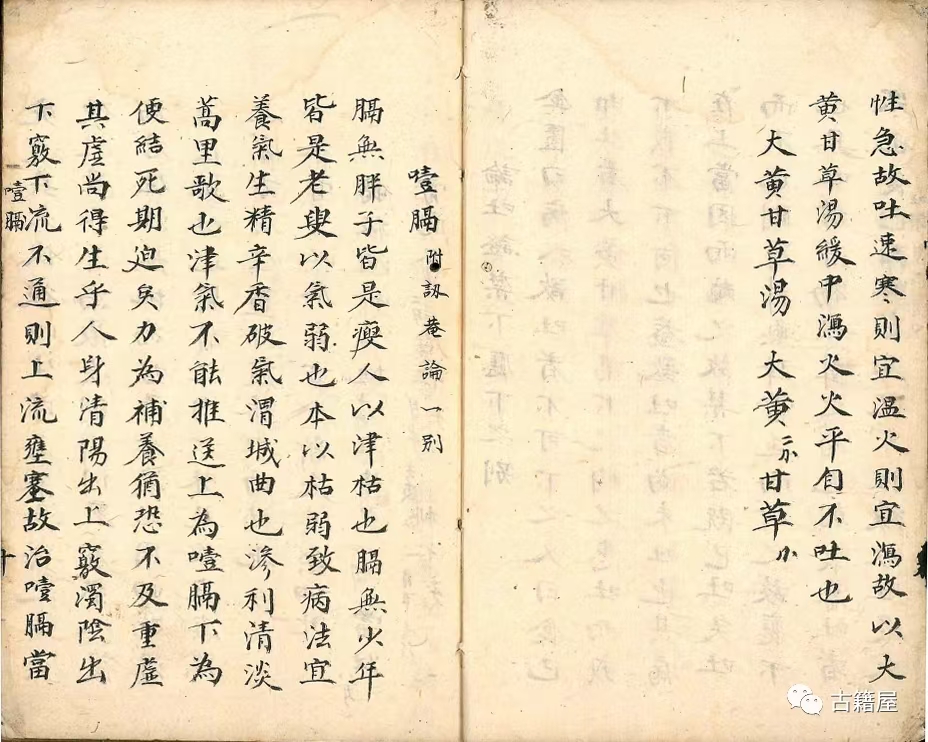 性急故吐速寒則宜温火則宜瀉故以大
黄甘草湯緩中瀉火火平自不吐也
大黄甘草湯 大黄 甘草
噎膈 附訒菴論一別
膈無胖子皆是瘦人以津枯也膈無少年
皆是老叟以氣弱也本以枯弱致病法宜
養氣生精辛香破氣渭城曲也滲利清淡
蒿里歌也津氣不能推送上為噎膈下為
便結死期迫矣力為補養猶恐不及重虚
其虚尚得生乎人身清陽出上竅濁陰出
下竅下流不通則上流壅塞故治噎膈當
噎膈
十
古籍屋